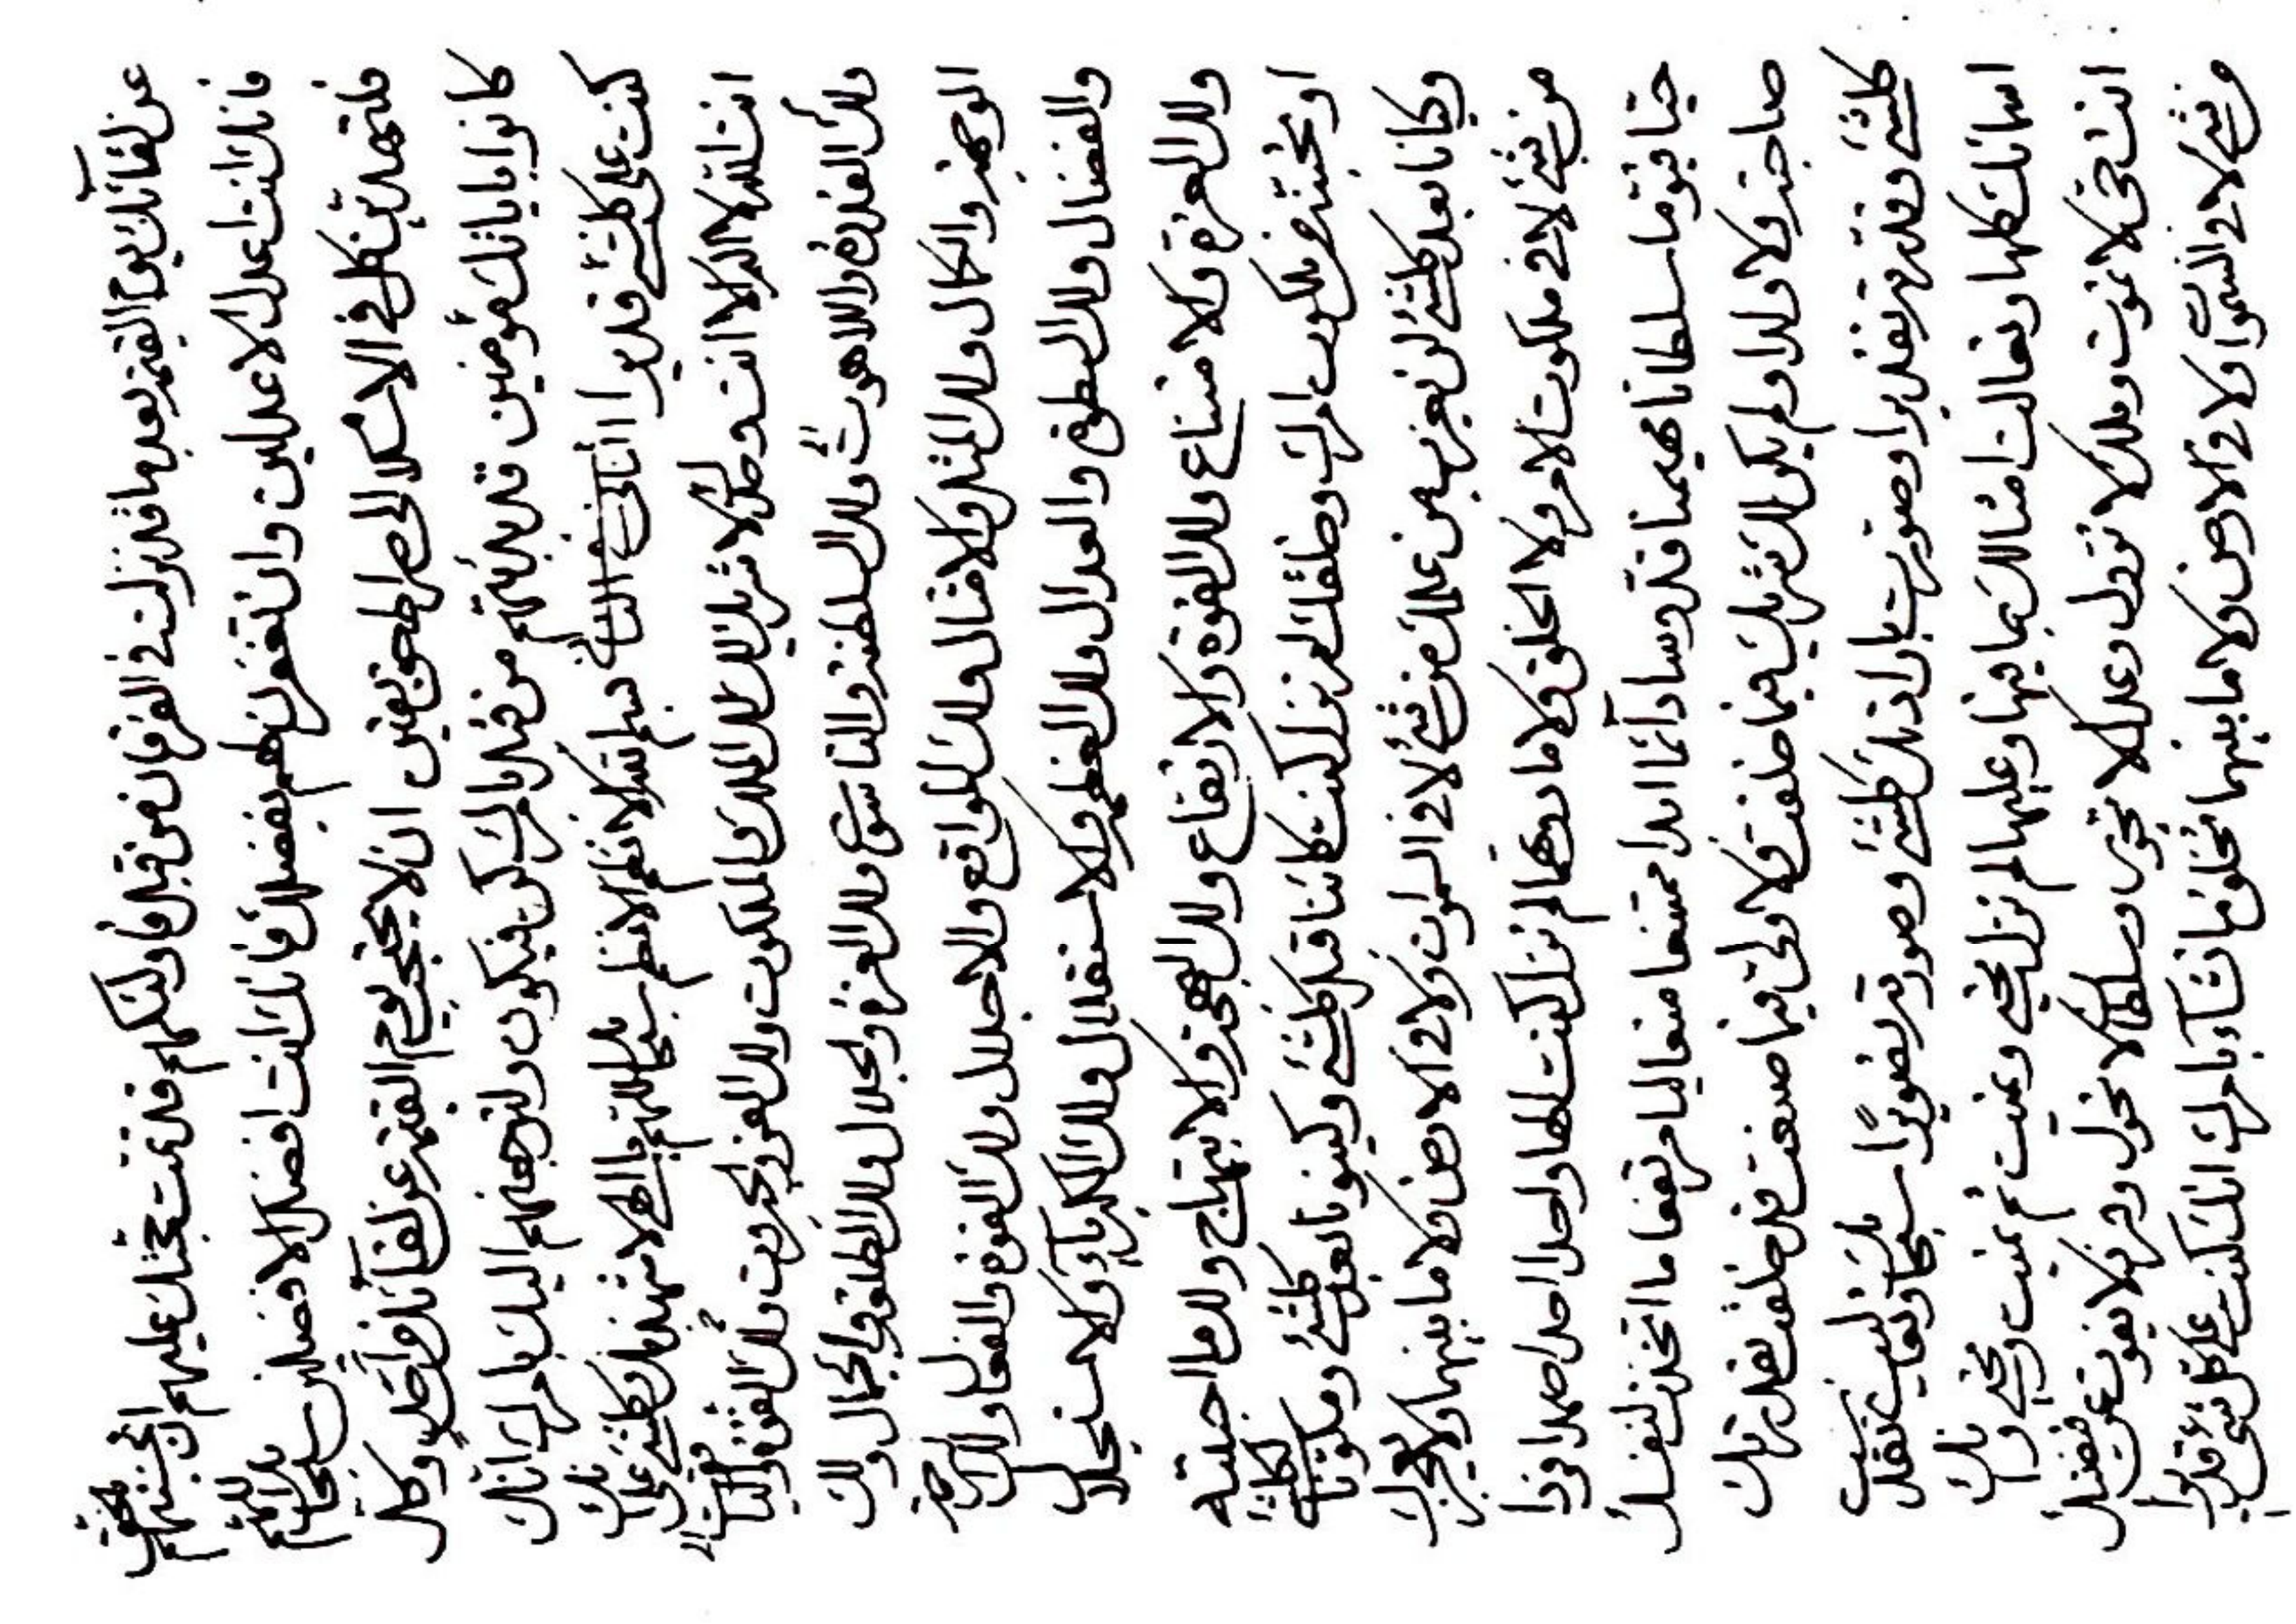 عن لقائك يوم القيمة بعد ما قد نزلت في الفرقان من قبل فاولئكهم قد تمت حجتك عليهم ان
فانك انت اعدل الاعدلين وان تغفرن لهم بفضلك فانك انت افضل الافضلين سبحانك اللهم
فلتهدين كل في الاسلام الى صراط حق يقين ان لا يحتجب يوم القيمة عن لقائك من احد وكل
كانوا باياتك مؤمنين قد بدئتهم من قبل بامرك كن فيكون ولترجعنهم اليك بامرك انك
كنت على كلشئ قديرا الثاني في الثاني بسم الله الانظم الانظم سبحانك اللهم يا الهي لاشهدنك وكلشئ على انك
انت الله لا اله الا انت وحدك لا شريك لك لك الملك والملكوت ولك العز والجبروت ولك القوة والياقوت
ولك القدرة واللاهوت ولك السلطنة والناسوت ولك العزة والجلال ولك الطلعة والجمال ولك
الوجهة والكمال ولك المثل والامثال ولك المواقع والاجلال ولك القوة والفعال ولك الرحمة
والفضال ولك السطوة والعدال ولك العظمة والاستقلال ولك الكبرياء والاستجلال
ولك العزة والامتناع ولك القوة والارتفاع ولك البهجة والابتهاج ولك ما احببته
او تحببنه من ملكوت امرك وخلقك لم تزل كنت كائنا قبل كلشئ وكينونا بعد كلشئ ومكونا لكلشئ
وكيانا بعد كلشئ لن يعزب من علمك من شئ لا في السموات ولا في الارض ولا ما بينهما ولا يعجزك
من شئ لا في ملكوت الامر ولا الخلق ولا ما دونهما لم تزل كنت الها واحدا احدا صمدا فردا
حيا قيوما سلطانا مهيمنا قدوسا دائما ابدا ممتنعا متعاليا مرتفعا ما اتخذت لنفسك
صاحبة ولا ولدا ولم يكن لك شريك فيما خلقت ولا ولي فيما صنعت قد خلقت بقدرتك
كلشئ وقدرته تقديرا وصورت بارادتك كلشئ وصورته تصويرا سبحانك وتعاليت تقدست
اسمائك كلها وتعالت امثالك بما فيها وعليها لم تزل تحيي وتميت ثم تميت وتحيي وانك
انت حي لا تموت وملك لا تزول وعدل لا تجور وسلطان لا تحول وفرد لا يفوت عن قبضتك
من شئ لا في السموات ولا في الارض ولا ما بينهما تخلق ما تشاء بامرك انك كنت على كل شئ قديرا